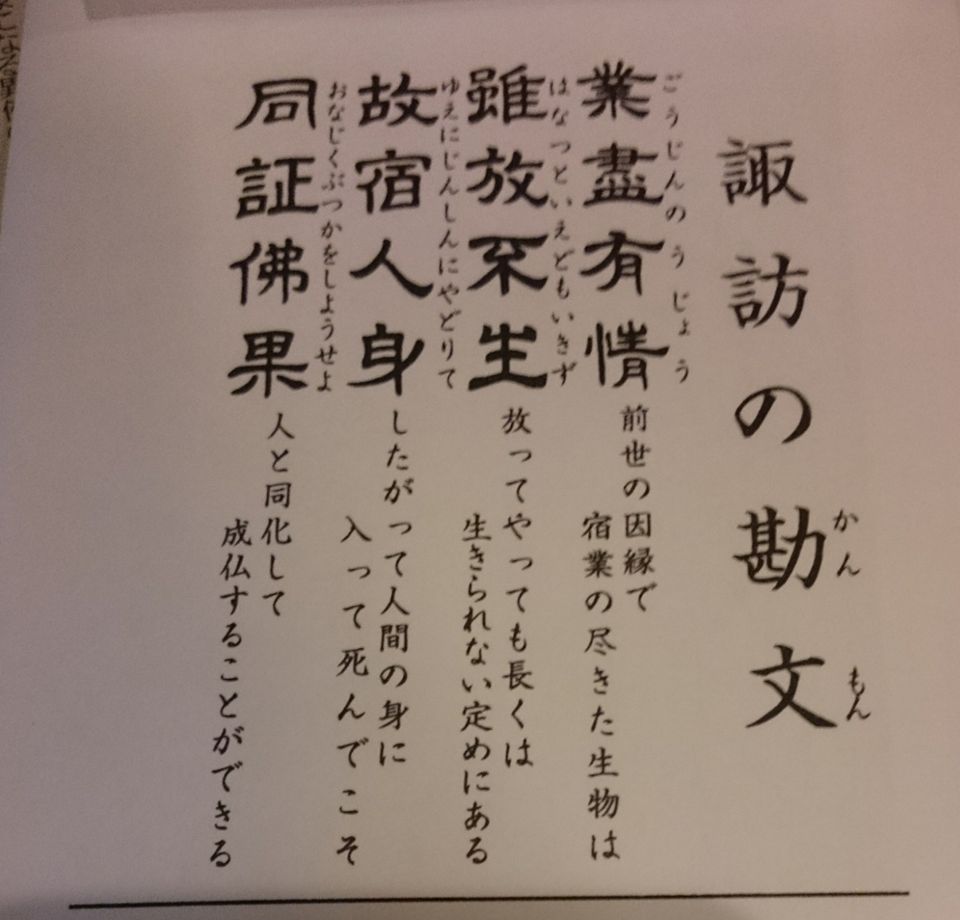 諏訪の勘文
かんもん
業盡有情
ごうじんのうじょう
前世の因縁で
宿業の尽きた生物は
雖放不生
はなつといえどもいきず
放ってやっても長くは
生きられない定めにある
故宿人身
ゆえにじんしんにやどりて
したがって人間の身に
入って死んでこそ
同証佛果
おなじくぶつかをしようせよ
人と同化して
成仏することができる